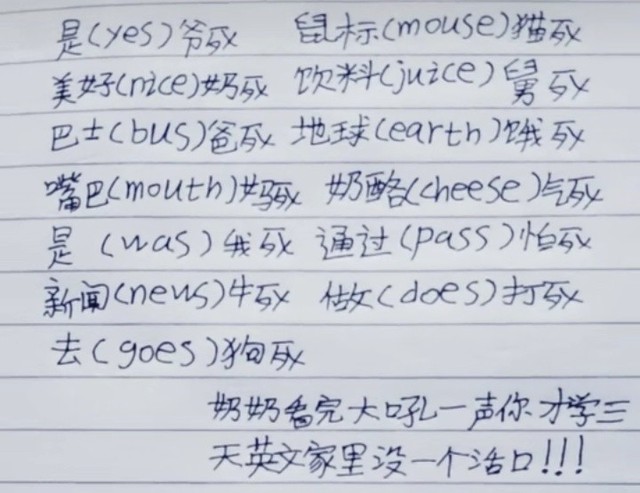 是(yes)爷死 鼠标(mouse)猫死
美好(nice)奶死 饮料(juice)舅死
巴士(bus)爸死 地球(earth)饿死
嘴巴(mouth)妈死 奶酪(cheese)气死
是(was)我死 通过(pass)怕死
新闻(news)牛死 做(does)打死
去(goes)狗死
奶奶看完大吼一声你才学三
天英文家里没一个活口!!!